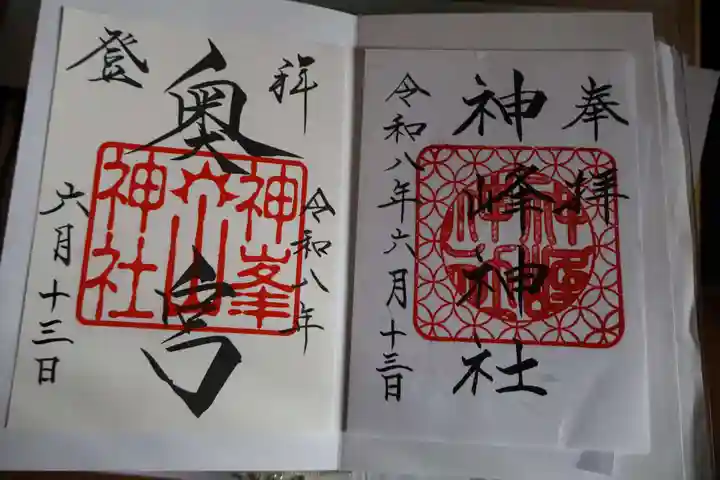 奉拝
神峰神社
令和八年六月十三日
登拝
奥宮
令和八年
六月十三日
神峯
神社